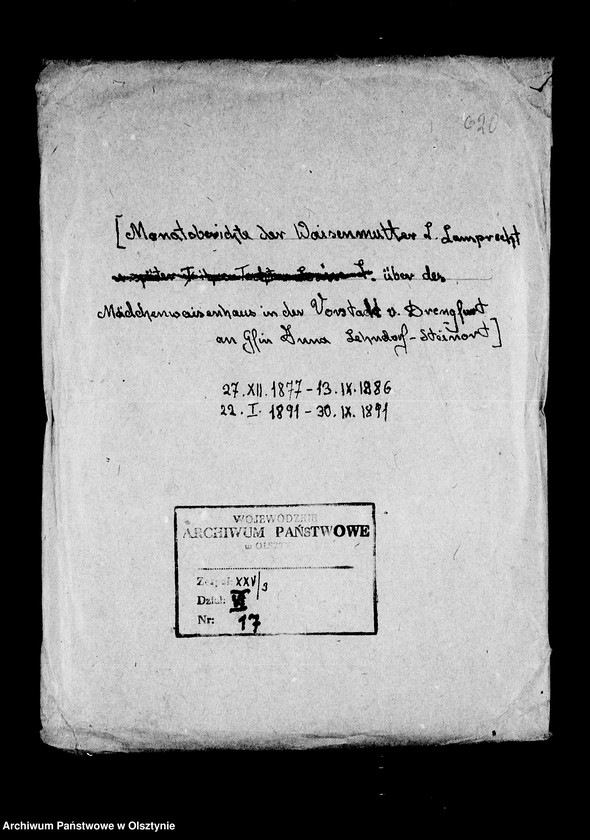 620
[Monatsberichte der Waisenmutter L. Lamprecht
über das
Mädchenwaisenhaus in der Vorstadt v. Drengfurt
an Gfin Anna Lehndorf-Steinort]
27.XII.1877-13.IX.1886
22.I.1891-30.IX.1891
WOJEWÓDZKIE
ARCHIWUM PAŃSTWOWE
w OLSZTYNIE
Zespół: XXV/3
Dział: VI
Nr: 17
Archiwum Państwowe w Olsztynie